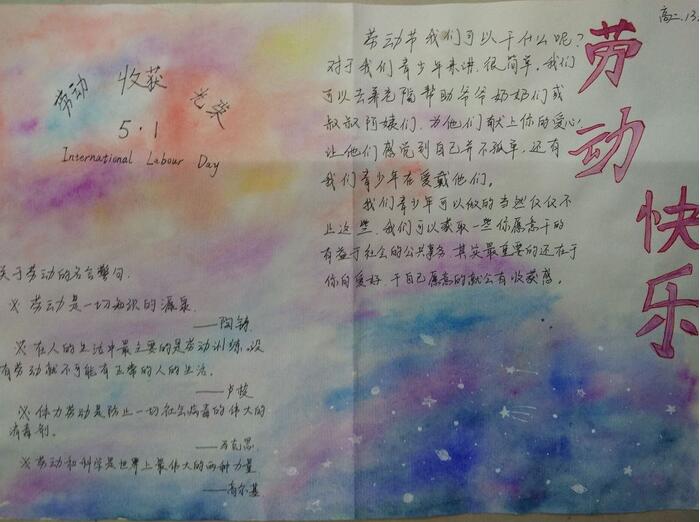 劳动 收获 光荣
5·1
International Labour Day
关于劳动的名言警句.
※ 劳动是一切知识的源泉.
——陶铸.
※ 在人的生活中最主要的是劳动训练.没
有劳动就不可能有正常的人的生活.
——卢梭
※ 体力劳动是防止一切社会病毒的伟大的
消毒剂.
——马克思.
※ 劳动和科学是世界上最伟大的两种力量
——高尔基
高二.13.
劳动快乐
劳动节我们可以干什么呢?
对于我们青少年来讲.很简单.我们
可以去养老院帮助爷爷奶奶们或
叔叔阿姨们.为他们献上你的爱心!
让他们感觉到自己并不孤单.还有
我们青少年在爱戴他们.
我们青少年可以做的当然仅仅不
止这些.我们可以 一些你愿意干的
有益于社会的公共事务.其实最重要的还在于
你的爱好.干自己愿意的就会有收获感.